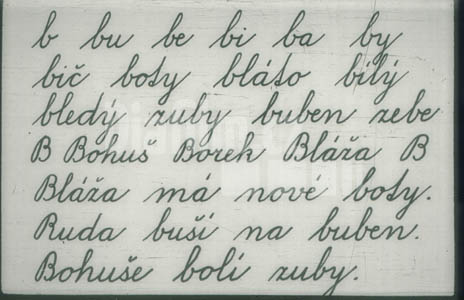 b bu be bi ba by
bič boty bláto bílý
bledý zuby buben zebe
B Bohuš Borek Bláža B
Bláža má nové boty.
Ruda buší na buben.
Bohuše bolí zuby.